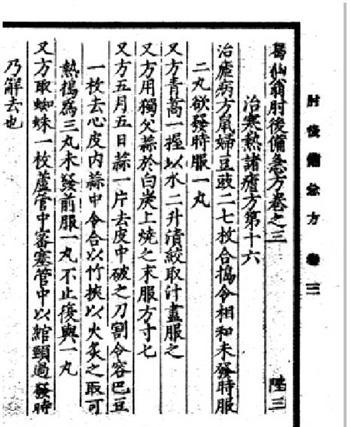 肘後備急方 卷三
葛仙翁肘後備急方卷之三 陟三
治寒熱諸瘧方第十六
治瘧病方鼠婦豆豉二七枚合搗令相和未發時服
二丸欲發時服一丸
又方青蒿一握以水二升漬絞取汁盡服之
又方用獨父蒜於白炭上燒之末服方寸匕
又方五月五日蒜一片去皮中破之刀割令容巴豆
一枚去心皮内蒜中令合以竹挾以火炙之取可
熱搗為三丸未發前服一丸不止復與一丸
又方取蜘蛛一枚蘆管中密塞管中以綰頸過發時
乃解去也